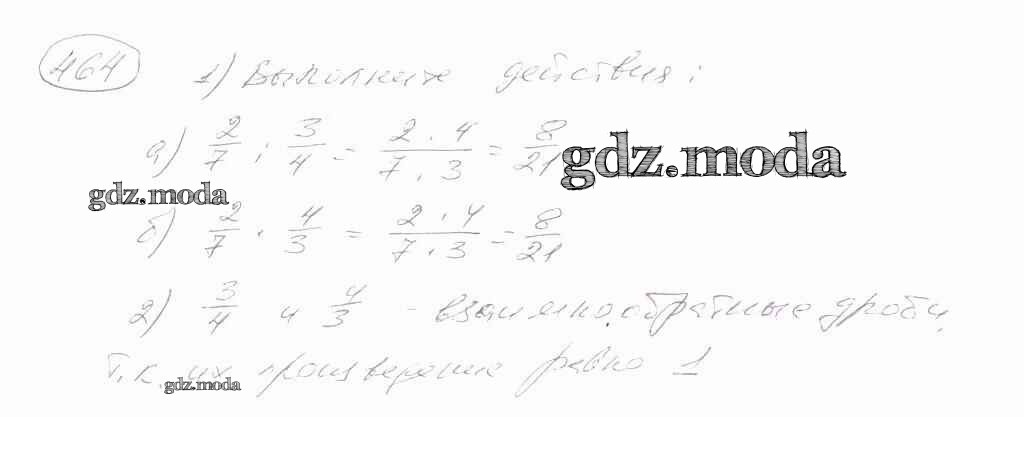 464 1) Выполните действия:
а) 2/7 : 3/4 = 2 · 4 / 7 · 3 = 8/21 gdz.moda
gdz.moda
б) 2/7 · 4/3 = 2 · 4 / 7 · 3 = 8/21
2) 3/4 и 4/3 - взаимно обратные дроби,
т.к. их произведение равно 1
gdz.moda